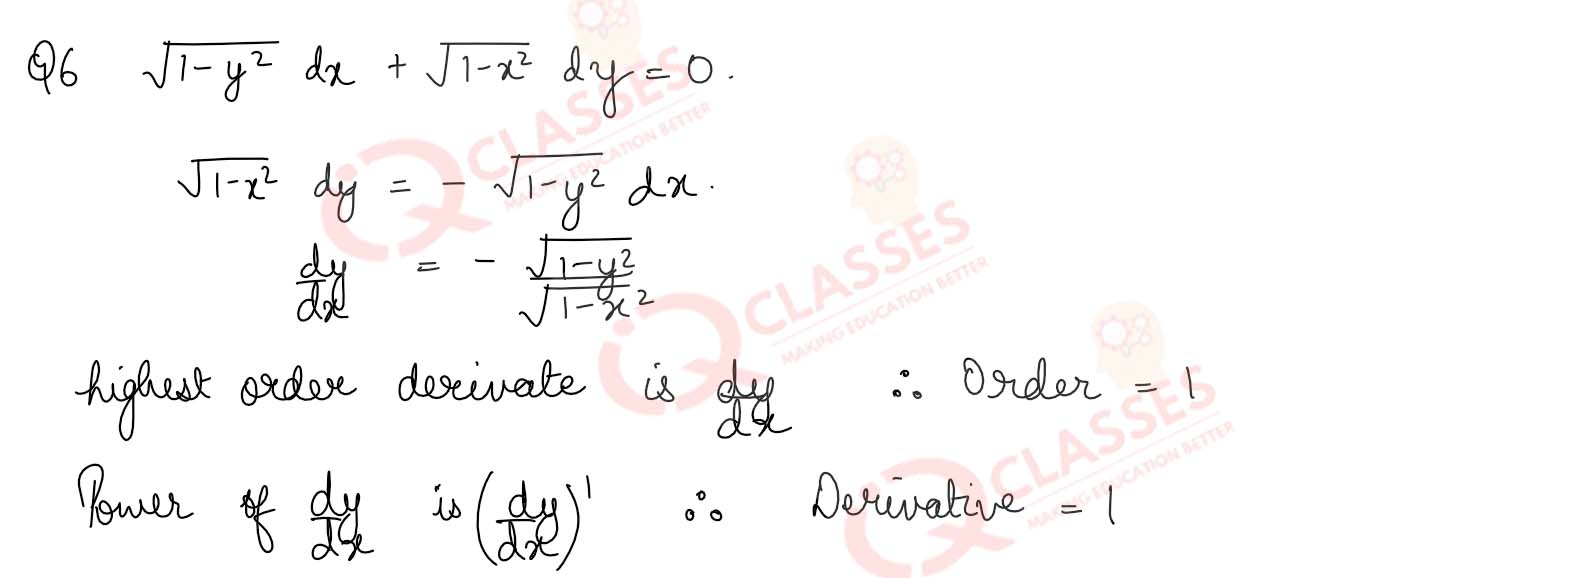 Q6 √(1-y²) dx + √(1-x²) dy = 0.
√(1-x²) dy = - √(1-y²) dx.
dy/dx = - √(1-y²)/√(1-x²)
highest order derivate is dy/dx ∴ Order = 1
Power of dy/dx is (dy/dx)¹ ∴ Derivative = 1
iQ CLASSES
MAKING EDUCATION BETTER
iQ CLASSES
MAKING EDUCATION BETTER
iQ CLASSES
MAKING EDUCATION BETTER